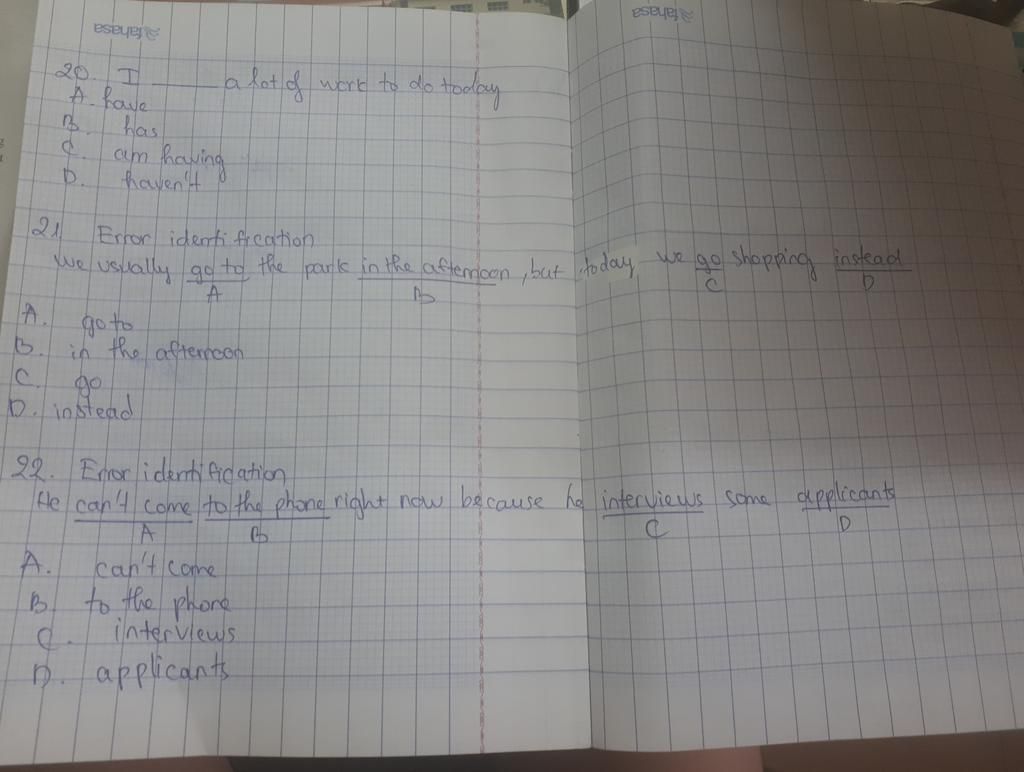 ≋fahasa
≋fahasa
20. I ______ a lot of work to do today
A. have
B. has
C. am having
D. haven't
21 Error identification
We usually go to the park in the afternoon, but today we go shopping instead
A B C D
A. go to
B. in the afternoon
C. go
D. instead
22. Error identification
He can't come to the phone right now because he interviews some applicants
A B C D
A. can't come
B to the phone
C. interviews
D. applicants